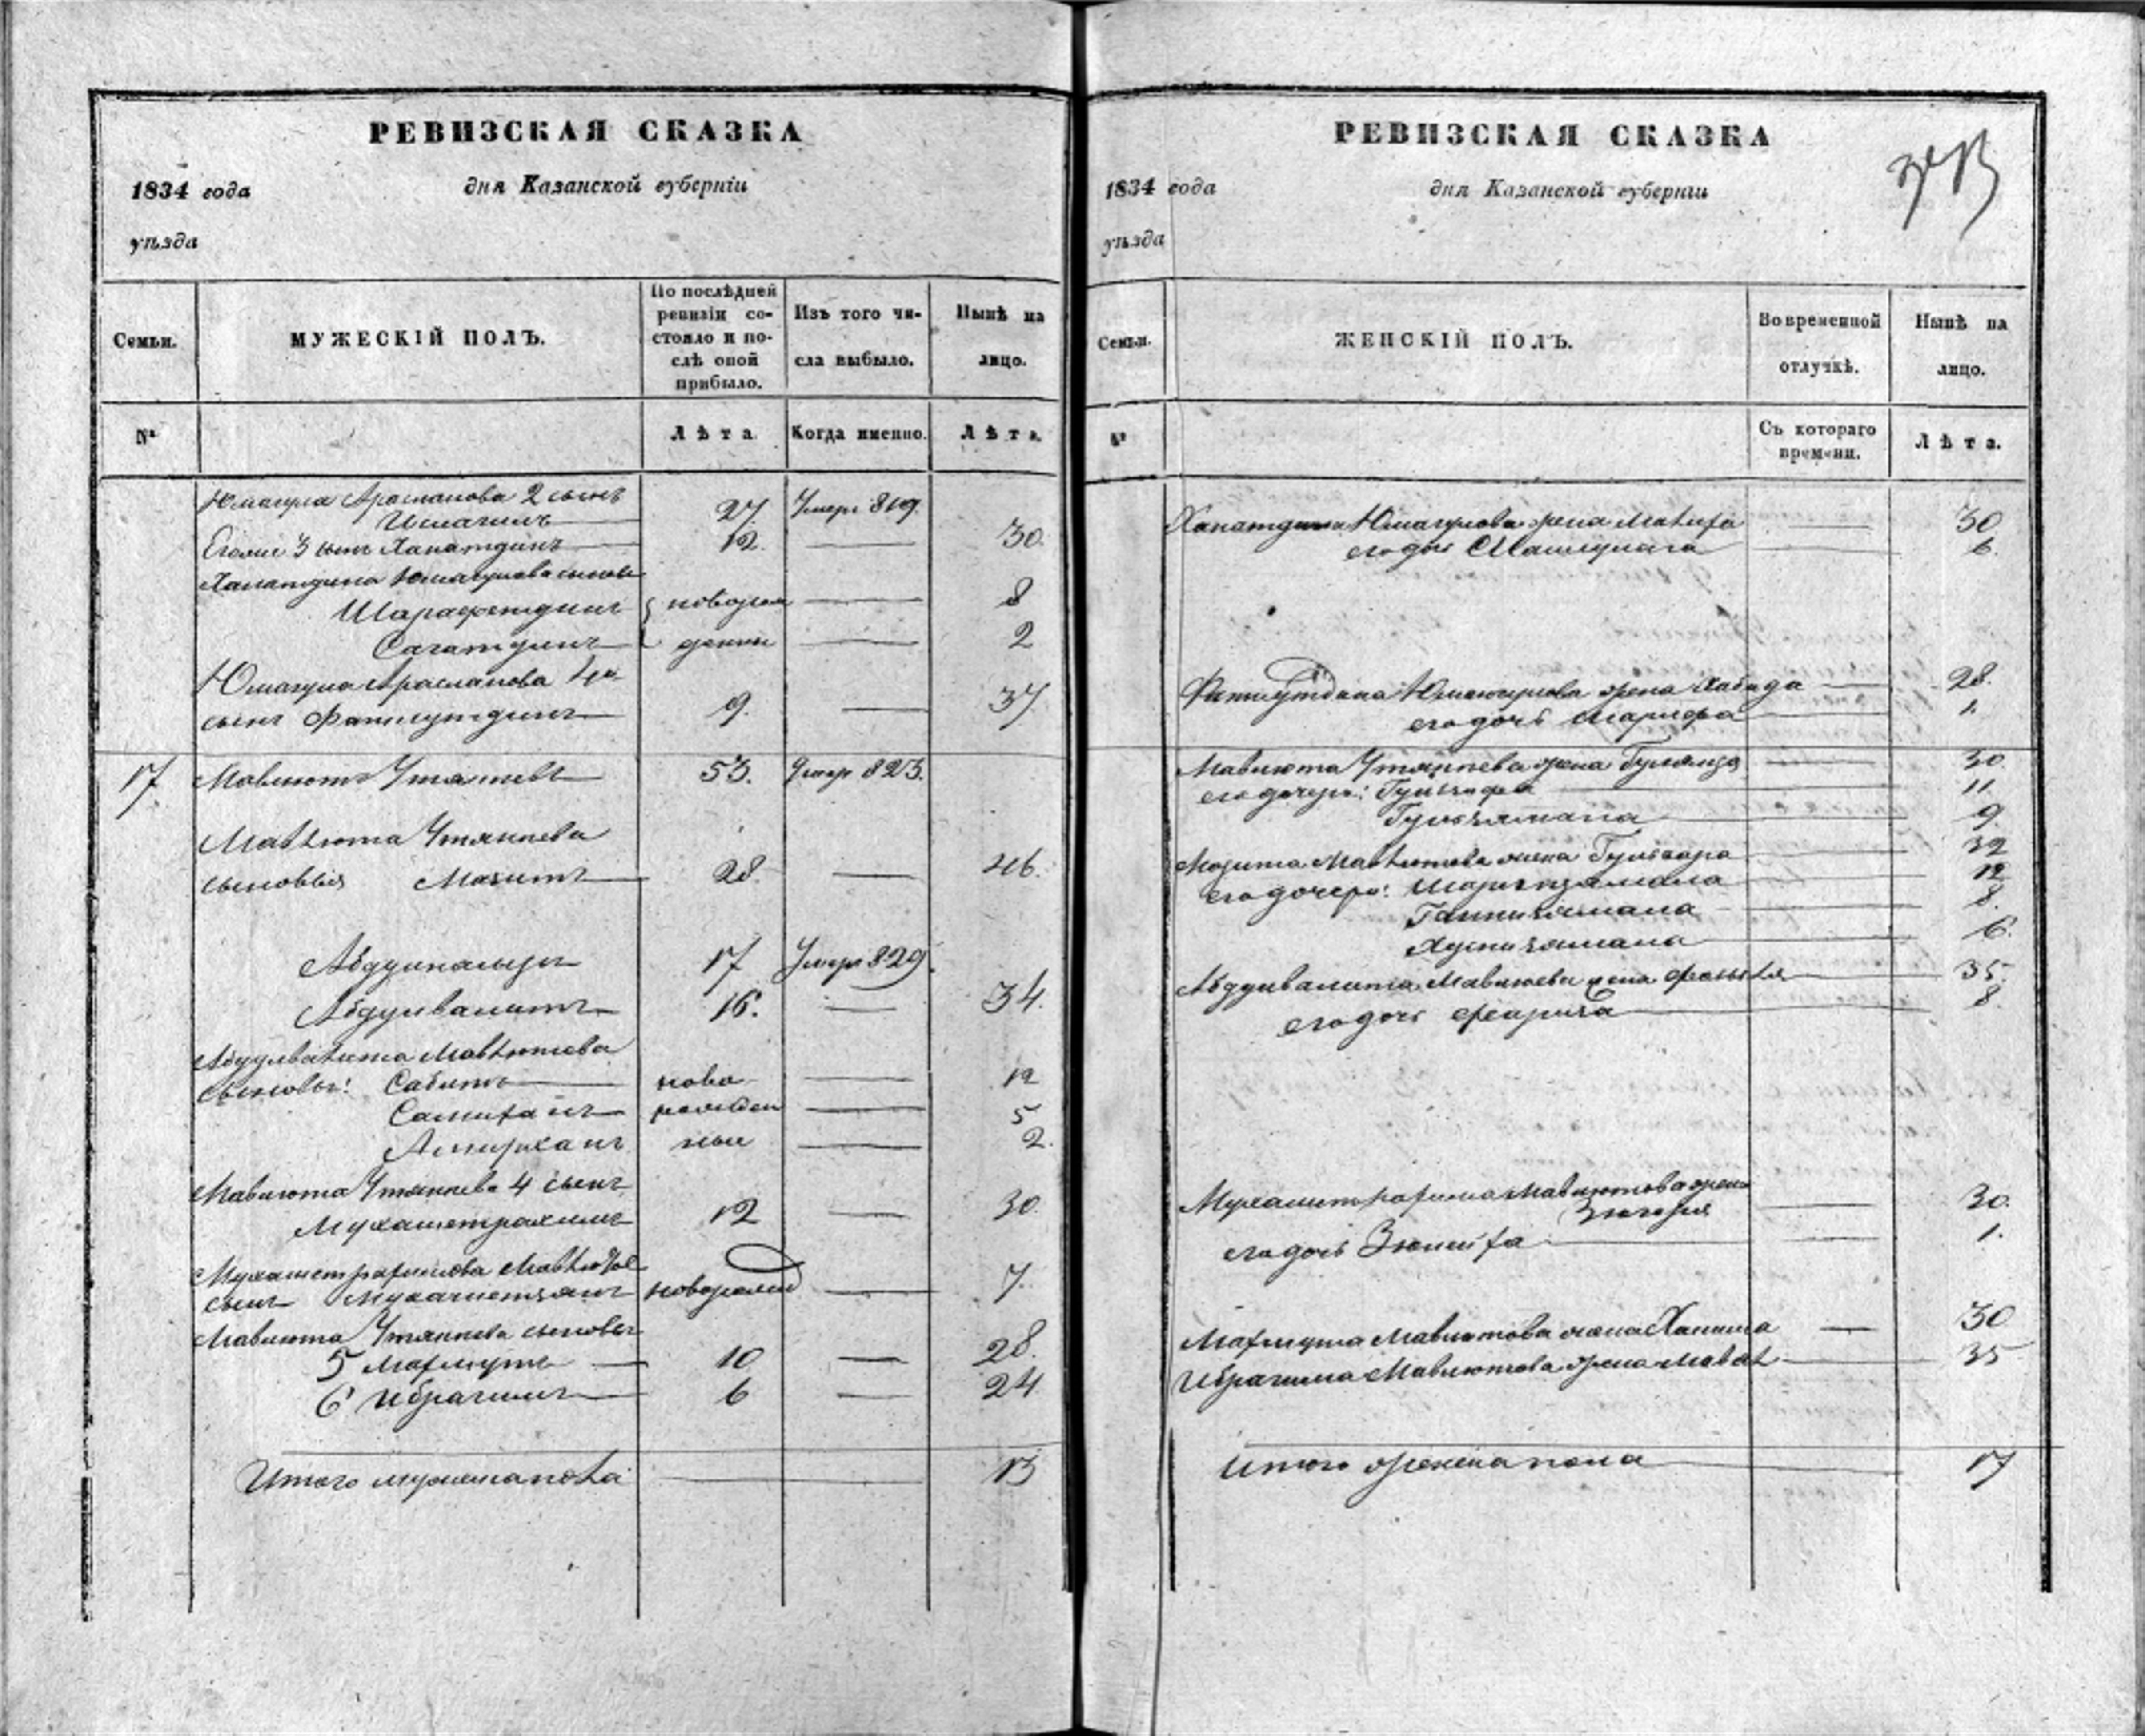 РЕВИЗСКАЯ СКАЗКА
1834 года дня Казанской губернiи
уѣзда
Семьи.
МУЖЕСКIЙ ПОЛЪ.
По послѣдней ревизiи состояло и послѣ оной прибыло.
Изъ того числа выбыло.
Нынѣ на лицо.
№
Лѣта.
Когда именно.
Лѣта.
Юмагула Арасланова 2 сынъ
Исмагилъ 27. Умеръ 819.
Его же 3 сынъ Ханатдинъ 12. 30.
Ханатдина Юмагулова сыновья
Шарафетдинъ новорож 8
Сагатдинъ денны 2
Юмагула Арасланова 4го
сынъ Фатхутдинъ 9. 37
17 Мавлютъ Утяшевъ 53. Умеръ 823.
Мавлюта Утяшева
сыновья Мазитъ 28. 46.
Абдулнасыръ 17 Умеръ 829.
Абдулвалитъ 16. 34.
Абдулвалита Мавлютова
сыновья: Сабитъ ново 12
Самиханъ рожден 5
Амирханъ ные 2.
Мавлюта Утяшева 4 сынъ
Мухаметрахимъ 12 30.
Мухаметрахимова Мавлютов
сынъ Мухаметзянъ новорожд 7.
Мавлюта Утяшева сыновья
5 Махмутъ 10 28.
6 Ибрагимъ 6 24
Итого мужеска пола 13
РЕВИЗСКАЯ СКАЗКА
1834 года дня Казанской губернiи
уѣзда
Семьи.
ЖЕНСКIЙ ПОЛЪ.
Во временной отлучкѣ.
Нынѣ на лицо.
№
Съ котораго времени.
Лѣта.
Ханатдина Юмагулова жена 30
его дочь 6.
Фатхутдина Юмагулова жена Хабида 28.
его дочь Марифа 1.
Мавлюта Утяшева жена 30.
его дочери: 11.
Гульзямала 9.
Мазита Мавлютова жена Гульсара 32
его дочери: 12
8.
Хуснизямала 6.
Абдулвалита Мавлютова жена 35.
его дочь 8.
Мухаметрахима Мавлютова жена
30.
его дочь Зюлейха 1.
Махмута Мавлютова жена Ханима 30
Ибрагима Мавлютова жена 35
Итого женска пола 17